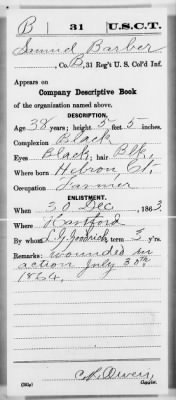 B | 31 | U.S.C.T.
Samuel Barber
, Co. B, 31 Reg't U. S. Col'd Inf.
Appears on
Company Descriptive Book
of the organization named above.
DESCRIPTION.
Age 38 years; height 5 feet 5 inches.
Complexion Black
Eyes Black; hair Blk.
Where born Hebron Ct.
Occupation Farmer
ENLISTMENT.
When 30 Dec, 1863
Where Hartford
By whom L. G. Goodrich; term 3 y'rs.
Remarks: wounded in
action July 30th
1864.
Owen
Copyist.